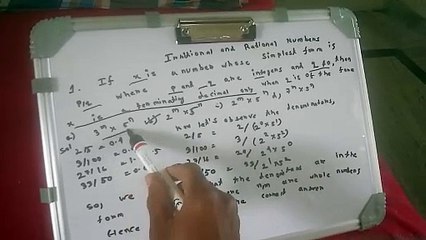 Irrational and Rational Numbers
1. If x is a number whose simplest form is
P/q where p and q are integers and q≠0, then
x is terminating decimal only when q is of the form
a) 3^m × 5^n b) 2^m × 5^n c) 2^m × 5^n d) 7^m × 5^n
Sol now let's observe the denominators,
2/5 = 0.4 2/5 = 2/(2^0 × 5^1)
3/100 = 0. 3/100 = 3/(2^2 × 5^2)
29/16 = 1. 5 29/16 = 29/2^4 × 5^0
33/50 = 0. /50 = 33/2^1 × 5^2
So, we the denominators are in the
form n,m are whole numbers
Hence the correct answer